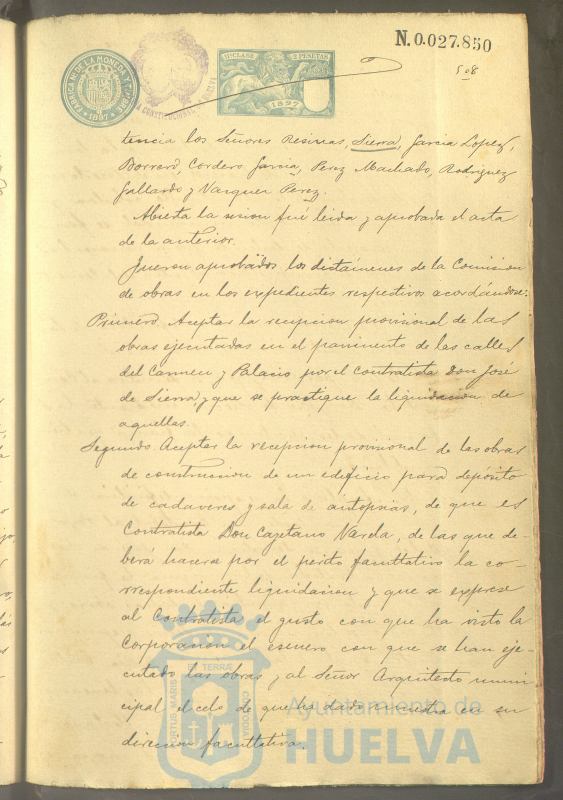 N.0.027.850
508
FABRICA NAL DE LA MONEDA Y TIMBRE
1897
11ª CLASE 2 PESETAS
1897
tencia los Señores Resinas, Sierra, Garcia Lopez,
Borrero, Cordero Garcia, Perez Machado, Rodriguez
Gallardo y Vazquez Perez.
Abierta la sesion fué leida y aprobada el acta
de la anterior.
Fueron aprobados los dictámenes de la Comision
de obras en los expedientes respectivos acordándose:
Primero. Aceptar la recepcion provisional de las
obras ejecutadas en el pavimento de las calles
del Carmen y Palacio por el contratista Don José
de Sierra, y que se practique la liquidacion de
aquellas.
Segundo. Aceptar la recepcion provisional de las obras
de construccion de un edificio para depósito
de cadaveres y sala de autopsias, de que es
Contratista Don Cayetano Varela, de las que de-
berá hacerse por el perito facultativo la co-
rrespondiente liquidacion y que se exprese
al Contratista el gusto con que ha visto la
Corporacion el esmero con que se han eje-
cutado las obras y al Señor Arquitecto muni-
cipal el celo de que ha dado muestra en su
direccion facultativa.
PORTUS MARIS ET TERRÆ CUSTODIA
Ayuntamiento de
HUELVA